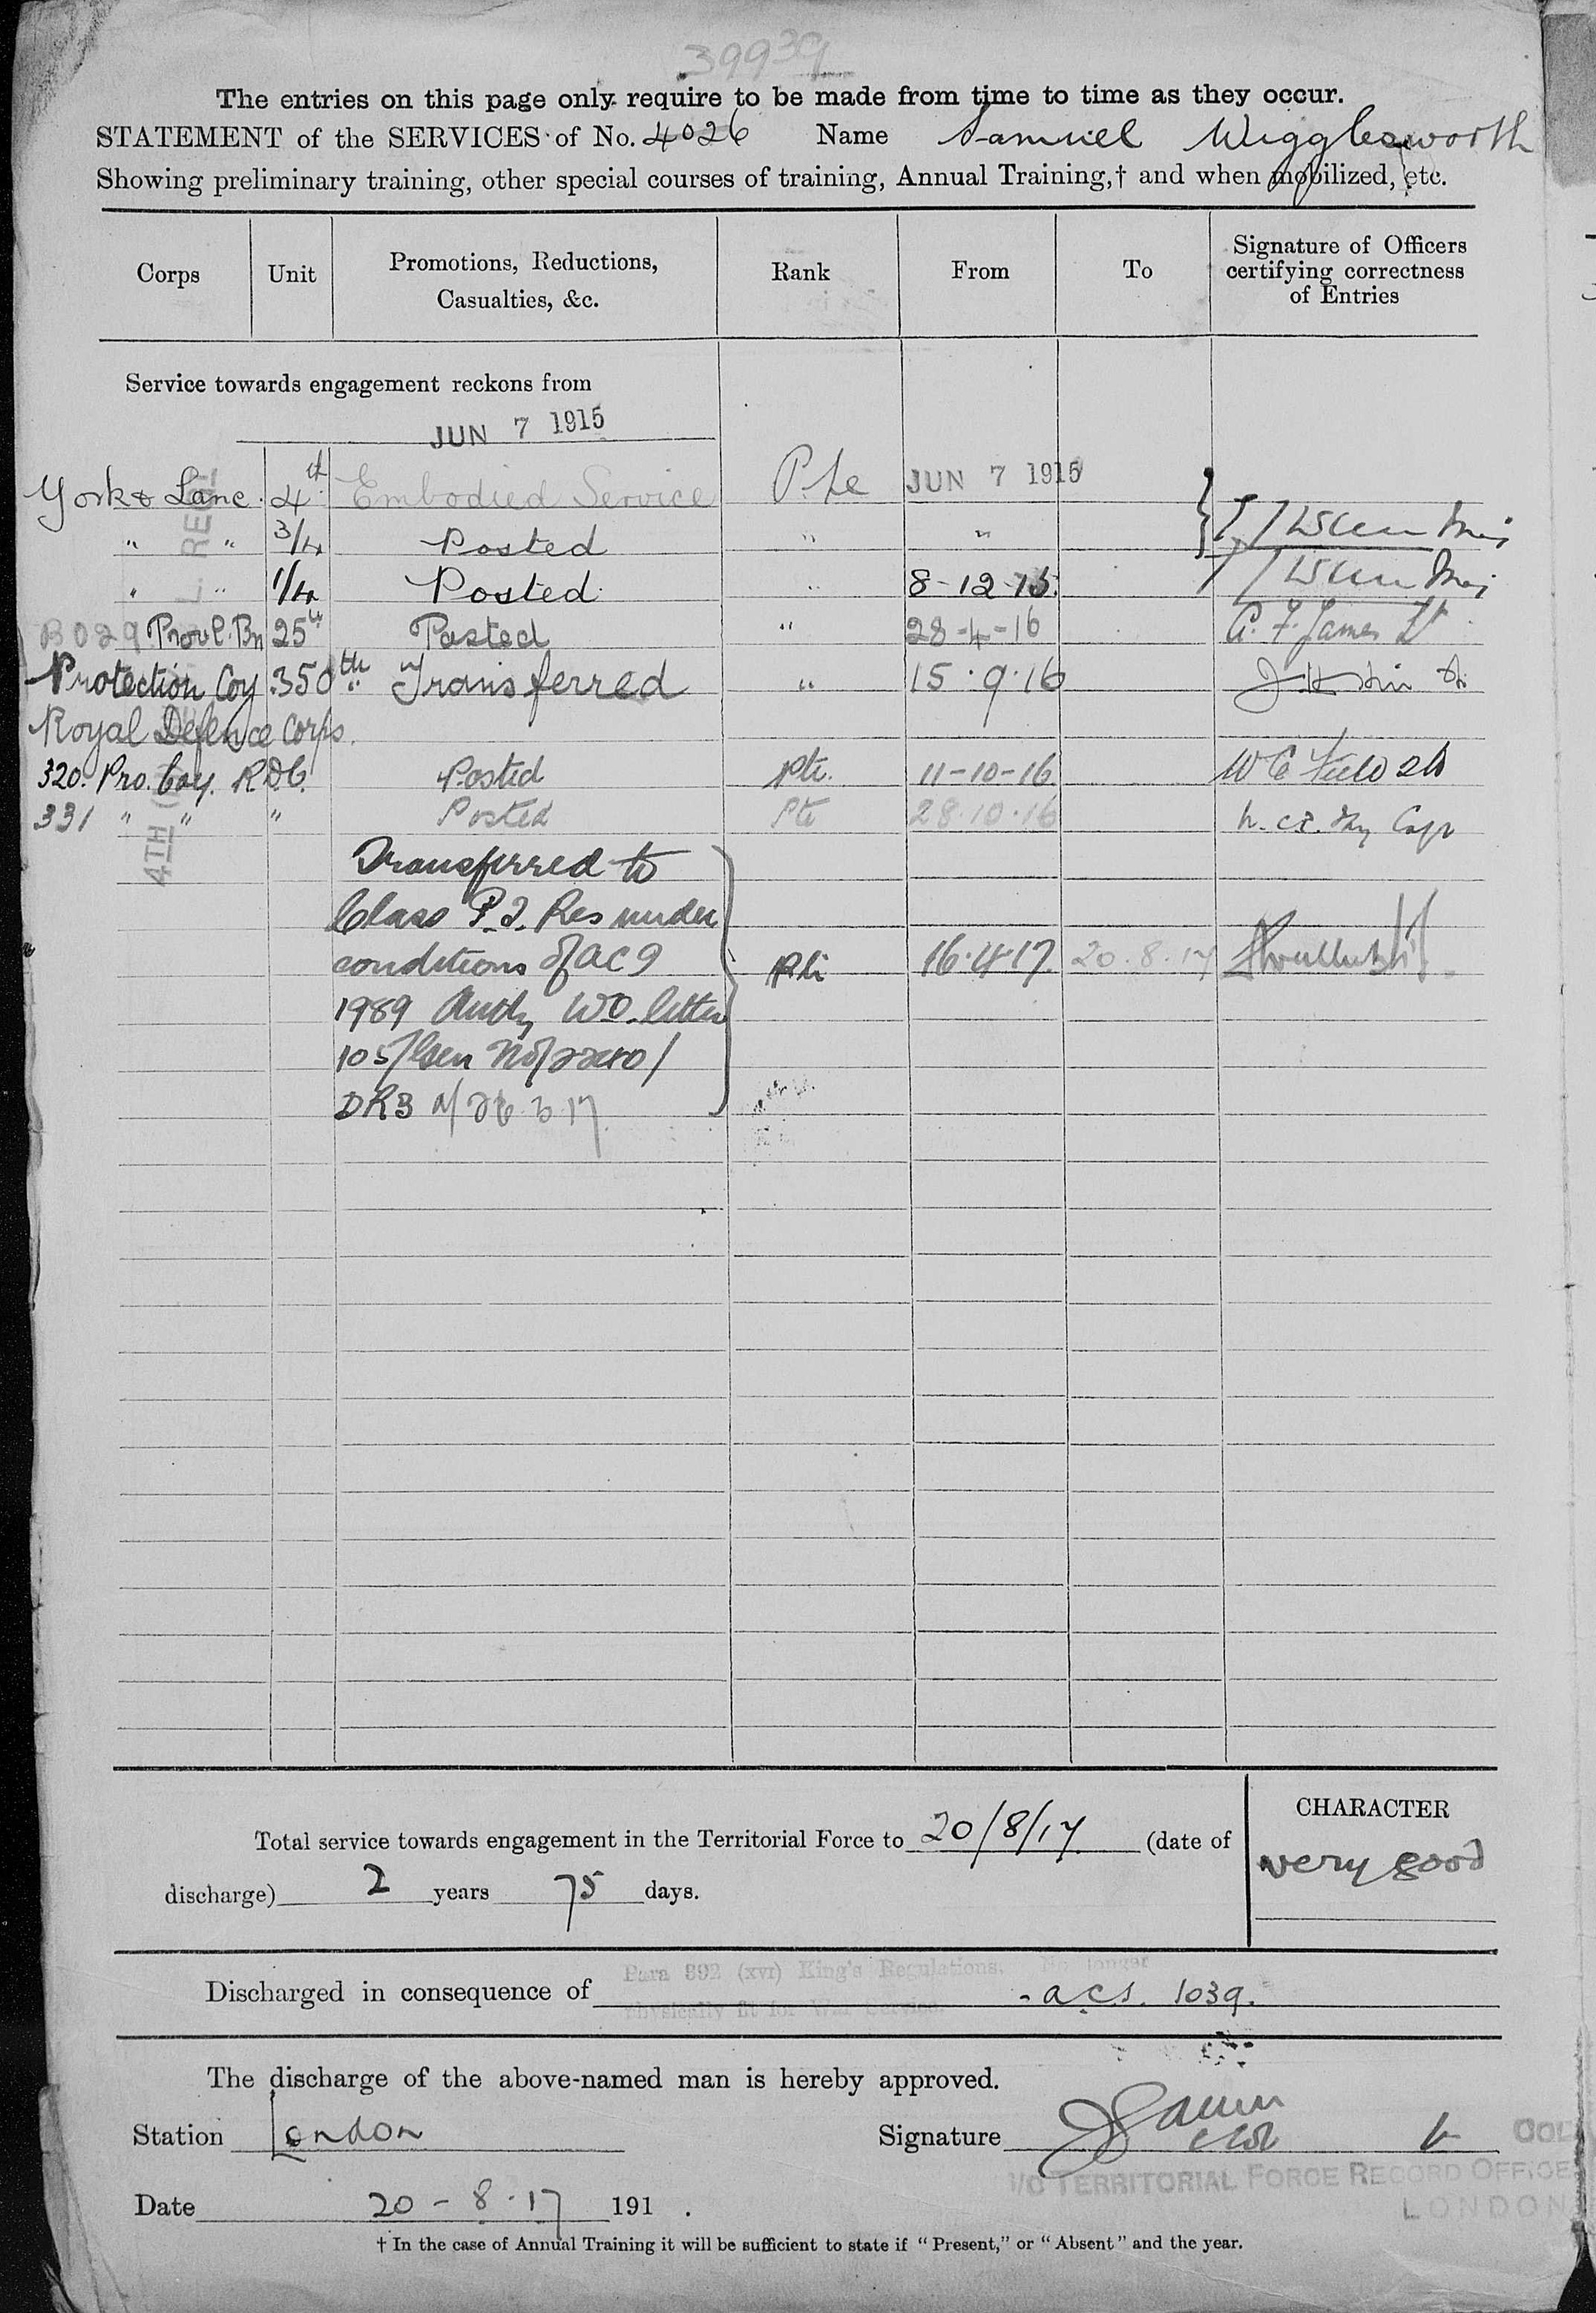 39939
The entries on this page only require to be made from time to time as they occur.
STATEMENT of the SERVICES of No. 4026 Name Samuel Wigglesworth
Showing preliminary training, other special courses of training, Annual Training,† and when mobilized, etc.
Corps Unit Promotions, Reductions, Casualties, &c. Rank From To Signature of Officers certifying correctness of Entries
Service towards engagement reckons from
JUN 7 1915
York & Lanc. 4th Embodied Service Pte JUN 7 1915
" " 3/4 Posted " "
" " 1/4 Posted " 8-12-15
Provl. Bn 25th Posted " 28-4-16 A. F. James Lt
Protection Coy 350th Transferred " 15.9.16
Royal Defence Corps.
320. Pro. Coy. RDC. Posted Pte. 11-10-16 W C Field 2Lt
331 " " " Posted Pte 28.10.16 Capt
4TH REGT.
Transferred to
Class P. T. Res under
conditions of ACI
1989 Authy WO. letter
105/Gen No/2240/
DR3 d/26.3.17
Pte 16.4.17. 20.8.17
Total service towards engagement in the Territorial Force to 20/8/17 (date of
discharge) 2 years 75 days.
CHARACTER
very good
Para 392 (xvi) King's Regulations. No longer
Discharged in consequence of physically fit for War Service. - acs. 1039.
The discharge of the above-named man is hereby approved.
Station London Signature COL
I/C TERRITORIAL FORCE RECORD OFFICE
LONDON
Date 20-8-17 191 .
† In the case of Annual Training it will be sufficient to state if "Present," or "Absent" and the year.